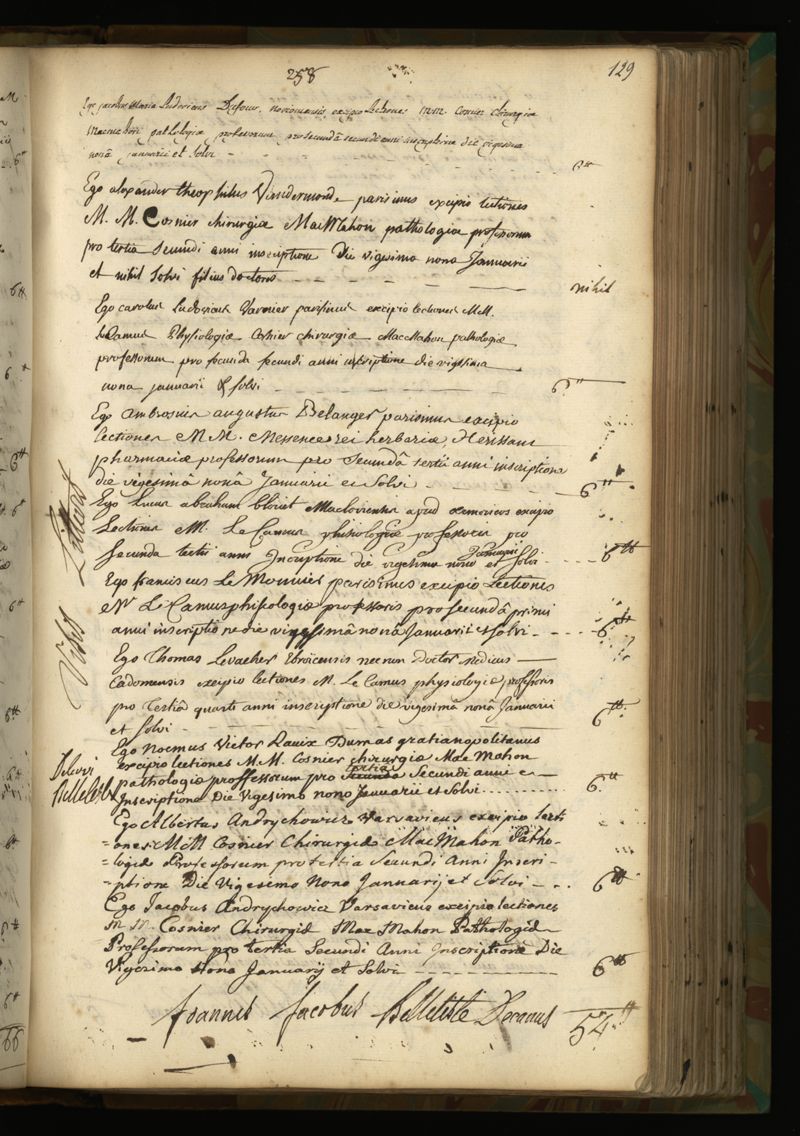 258
129
Ego jacobus Maria ludovicus Dufour, excipio lectiones M.M. Cosnier chirurgiæ
Macmahon pathologiæ professorum, pro secundâ secundi anni inscriptione die vigesima
nonâ januarii et solvi - - - 6tt
Ego alexander theophilus Vandermonde parisinus excipio lectiones
M. M. Cosnier chirurgiæ MacMahon pathologiæ professorum
pro tertia secundi anni inscriptione Die vigesima nona Januarii
et nihil solvi filius doctoris - - - - nihil
Ego carolus Ludovicus Varnier parisinus excipio lectiones MM.
le Camus Physiologiæ Cosnier chirurgiæ MacMahon pathologiæ
professorum pro secunda secundi anni inscriptione die vigesima
nona januarii & solvi - - - - 6tt
Ego ambrosius augustus Belanger parisinus excipio
lectiones M M. Messence rei herbariæ, Herissant
pharmaciæ professorum pro secundâ tertii anni inscriptione
die vigesimâ nonâ Januarii et solvi - - - 6tt
Ego Lucas abraham bloict Macloviensis apud armoricos excipio
Lectiones M. Le Camus phisiologiæ professoris pro
secunda tertii anni Inscriptione die vigesima nona Januarii et solvi - - - 6tt
Ego franciscus Le Monnier parisinus excipio Lectiones
Mr Le Camus phisologiæ professoris pro secundâ primi
anni inscriptione die vigessimâ nonâ Januarii et solvi - - - 6tt
Ego Thomas Levacher Ebroïcensis necnon Doctor medicus
Cadomensis excipio lectiones M. Le Camus physiologiæ professoris
pro Tertiâ quarti anni inscriptione die vigesimâ nonâ Januarii
et solvi - - - 6tt
Ego Noemus Victor Dumas gratianopolitanus
excipio lectiones M.M. Cosnier chirurgiæ Mac Mahon
pathologiæ proffessorum pro secunda tertia Secundi anni
Inscriptione Die vigesimo nono Januarii et solvi - - - 6tt
Ego Albertus Andrychowicz Varsavicus excipio lecti
ones MM Cosnier Chirurgiæ MacMahon Patho-
=logiæ Professorum pro tertia Secundi Anni Inscri-
=ptione Die Vigesimo Nono Januarij et Solvi - - - 6tt
Ego Jacobus Andrychowicz Varsavicus excipio lectiones
M M. Cosnier Chirurgiæ Mac Mahon Pathologiæ
Professorum pro tertia Secundi Anni Inscriptione Die
Vigesimo Nona Januarij et Solvi - - - 6tt
Joannes Jacobus Belleteste Decanus 54tt